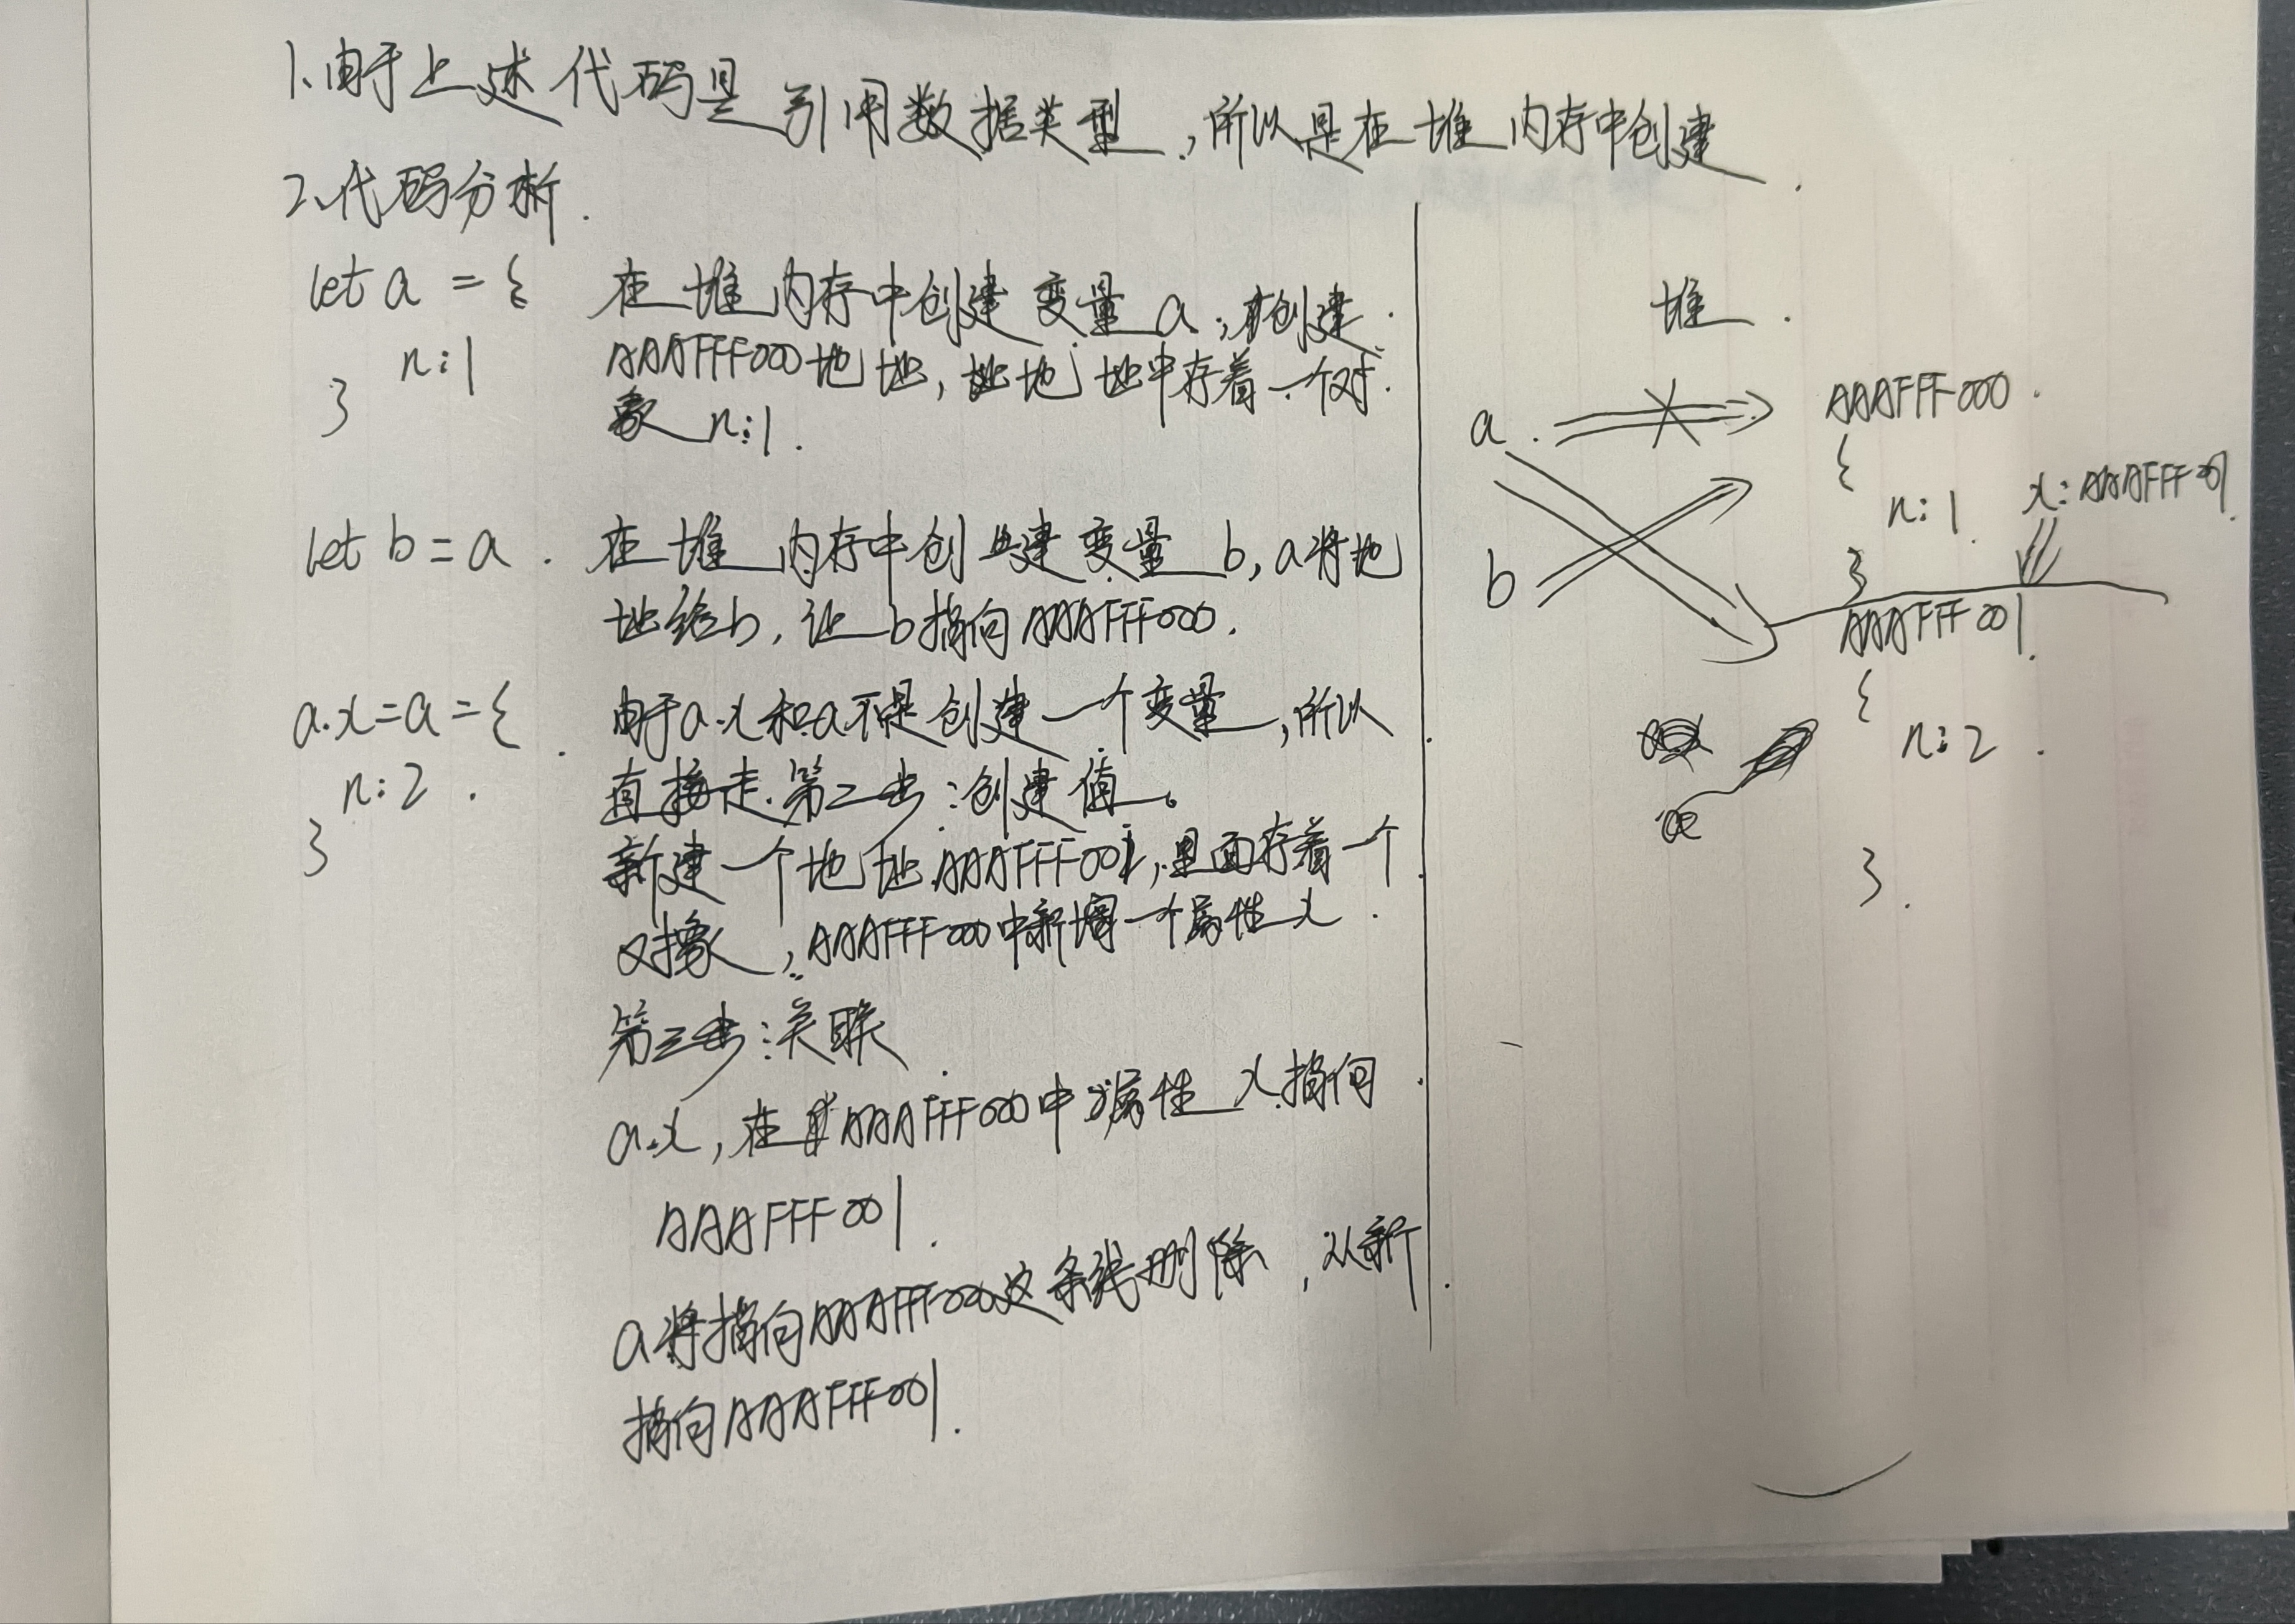 1、由于上述代码是引用数据类型,所以是在堆内存中创建.
2、代码分析.
let a = {
n:1
}
在堆内存中创建变量a,创建
AAAFFF000地址,地址中存着一个对
象n:1.
let b = a.
在堆内存中创建变量b,a将地
址给b,让b指向AAAFFF000.
a.x=a={
n:2.
}
由于a.x和a不是创建一个变量,所以
直接走.第二步:创建值。
新建一个地址AAAFFF001,里面存着一个
对象,AAAFFF000中新增一个属性x
第三步:关联
a.x,在AAAFFF000中属性x指向
AAAFFF001.
a将指向AAAFFF000这条线删除,从新
指向AAAFFF001.
堆.
a.
b
AAAFFF000.
{
n:1
x:AAAFFF001
}
AAAFFF001.
{
n:2.
}.